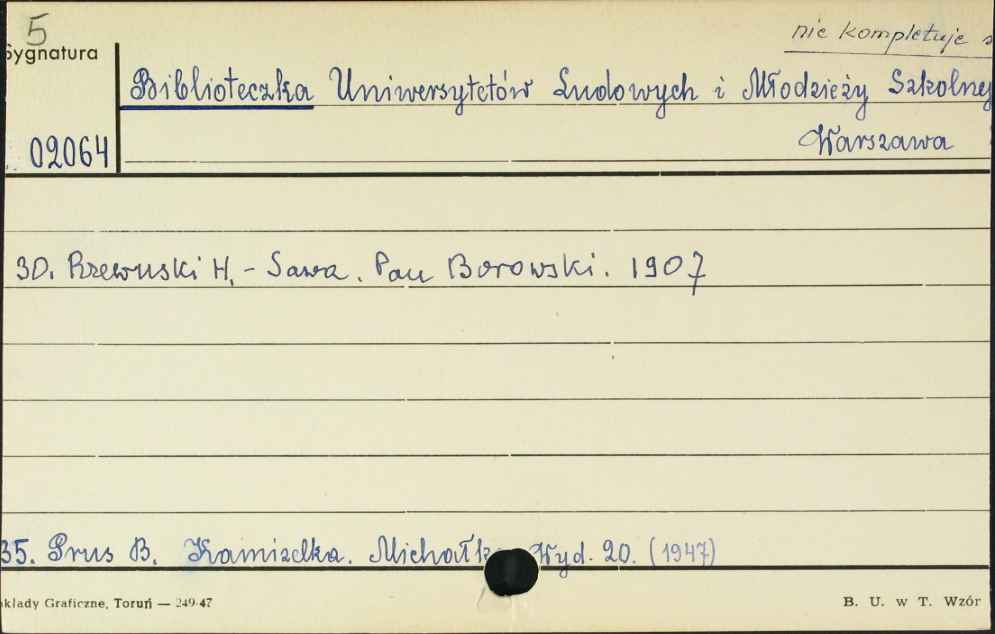 5
nie kompletuje s
Sygnatura
Biblioteczka Uniwersytetów Ludowych i Młodzieży Szkolnej
Warszawa
02064
30. Rzewuski H. - Sawa. Pan Borowski. 1907
35. Prus B. Kamizelka. Michałko Wyd. 20. (1947)
akłady Graficzne, Toruń — 249-47
B. U. w T. Wzór